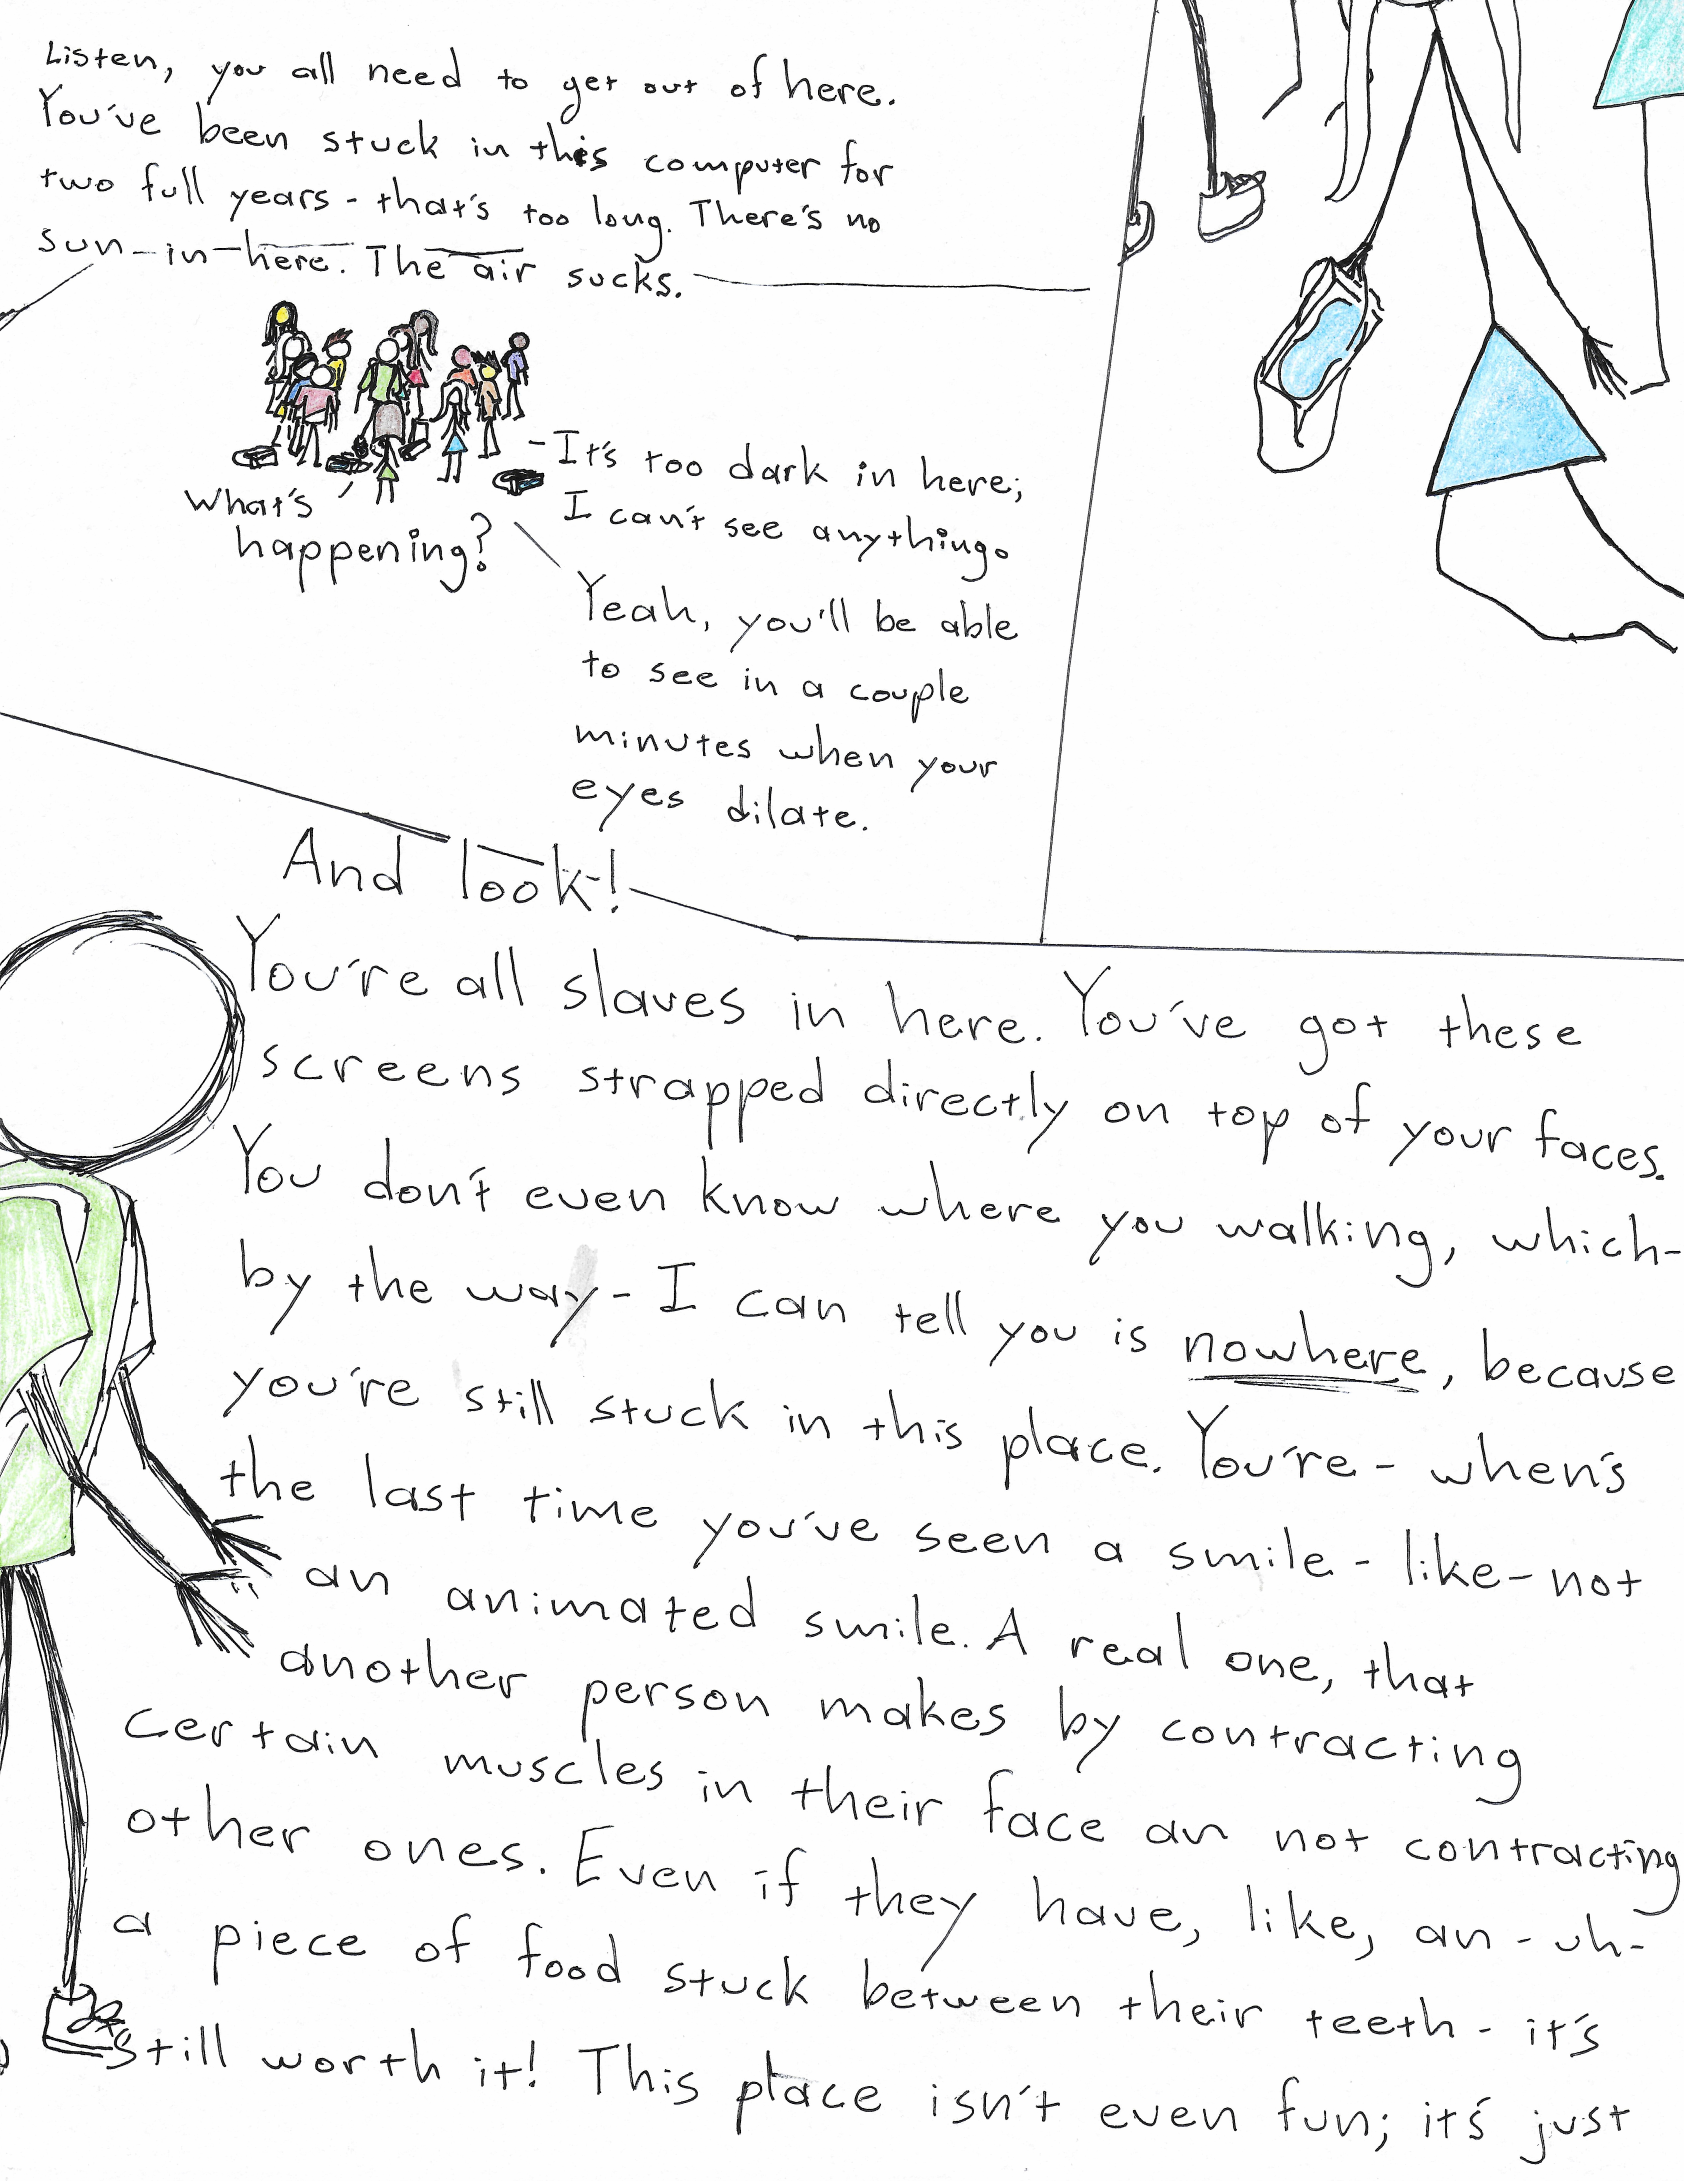 Listen, you all need to get out of here.
You've been stuck in this computer for
two full years - that's too long. There's no
sun in here. The air sucks.
What's
happening?
- It's too dark in here;
I can't see anything.
Yeah, you'll be able
to see in a couple
minutes when your
eyes dilate.
And look!
You're all slaves in here. You've got these
screens strapped directly on top of your faces.
You don't even know where you walking, which-
by the way - I can tell you is nowhere, because
you're still stuck in this place. You're - when's
the last time you've seen a smile - like - not
an animated smile. A real one, that
another person makes by contracting
certain muscles in their face an not contracting
other ones. Even if they have, like, an - uh-
a piece of food stuck between their teeth - it's
still worth it! This place isn't even fun; it's just